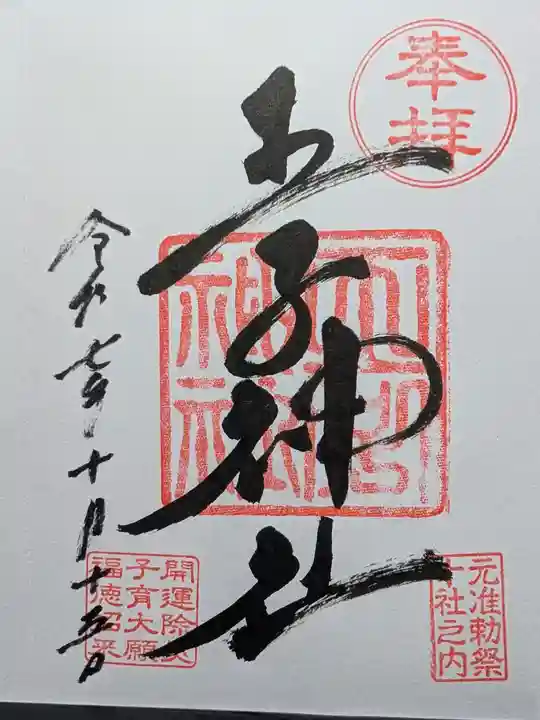 奉拝
王子神社
王子
神社
元准勅祭
十社之内
令和七年十月十五日
開運除災
子育大願
福徳招来